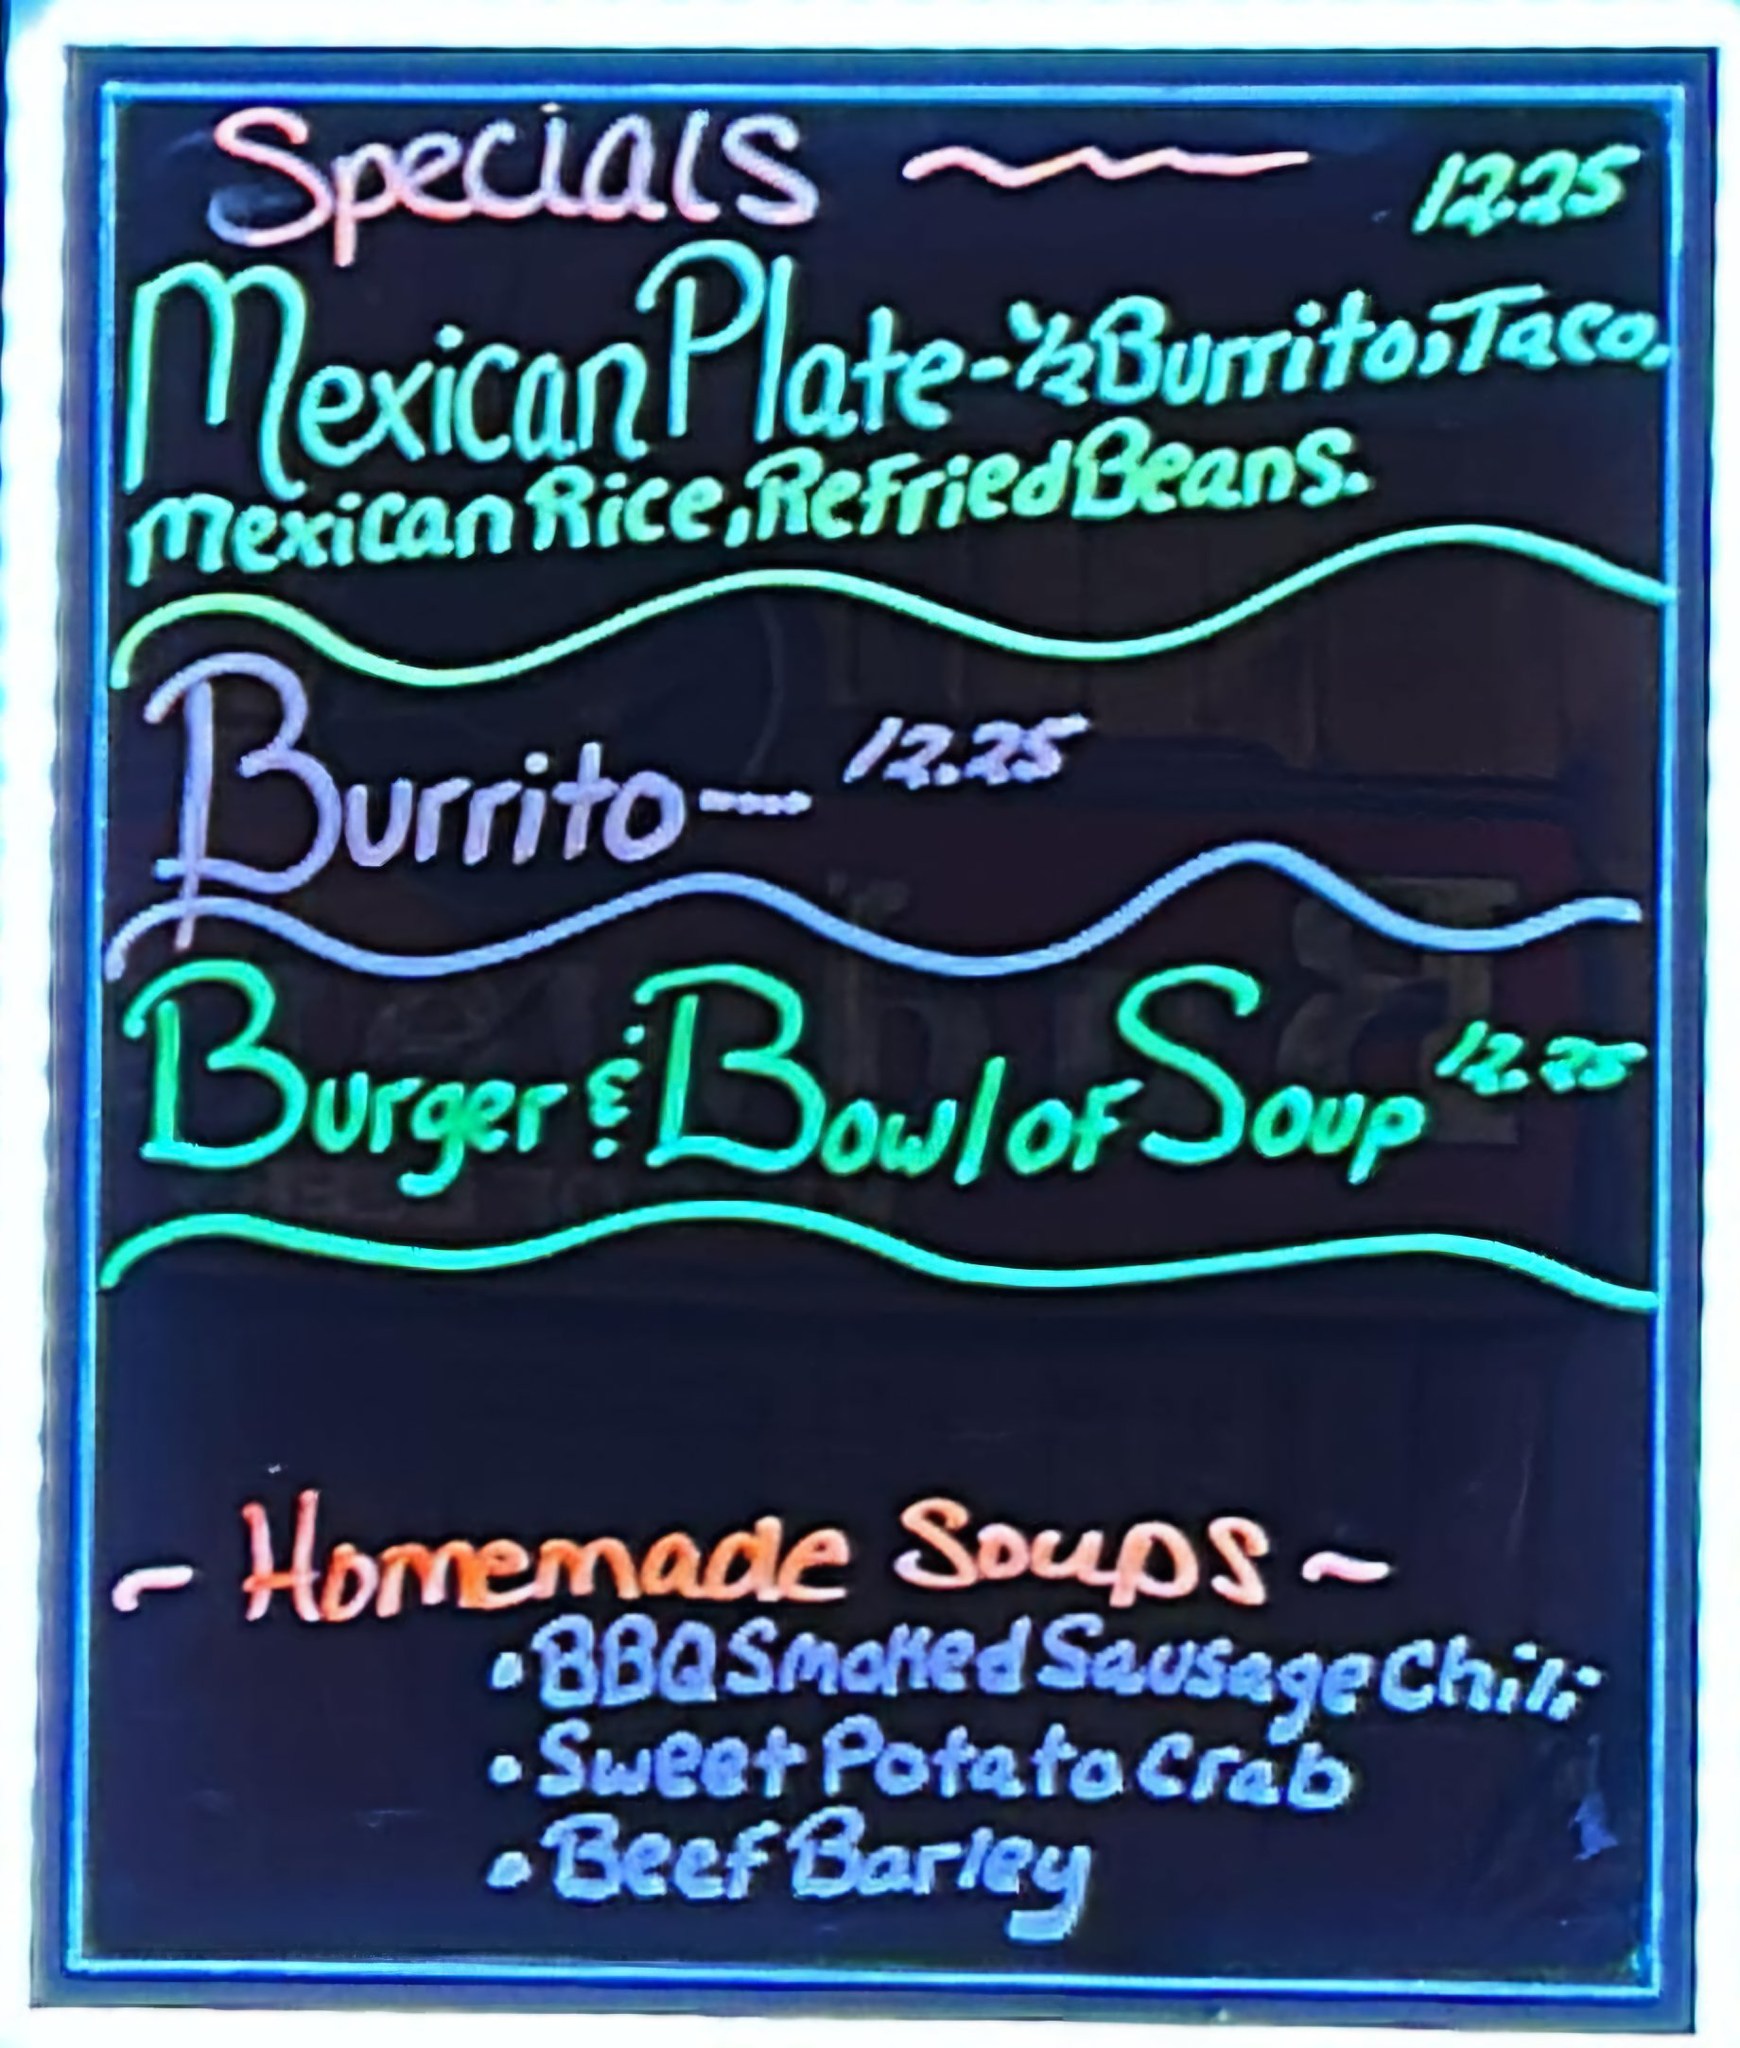 Specials 12.25
Mexican Plate - ½ Burrito, Taco,
Mexican Rice, Refried Beans.
Burrito---- 12.25
Burger & Bowl of Soup 12.25
~ Homemade Soups ~
• BBQ Smoked Sausage Chili
• Sweet Potato Crab
• Beef Barley